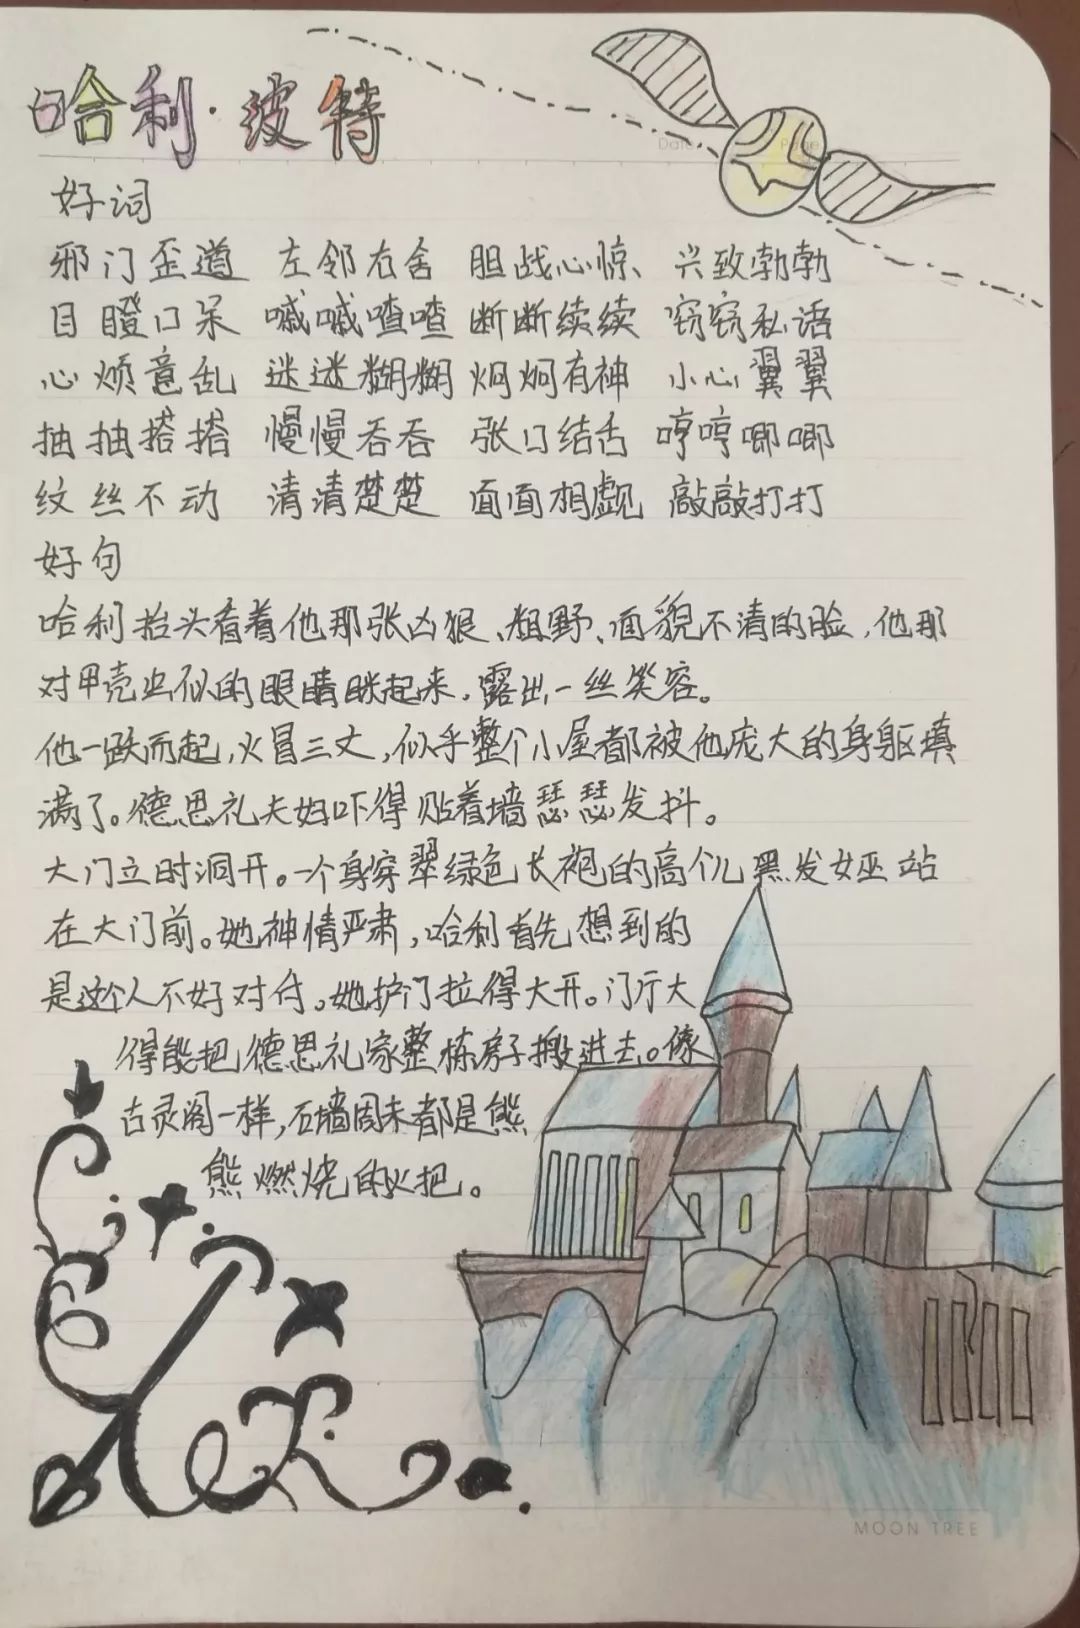 哈利·波特
Date Page
好词
邪门歪道 左邻右舍 胆战心惊 兴致勃勃
目瞪口呆 嘁嘁喳喳 断断续续 窃窃私语
心烦意乱 迷迷糊糊 炯炯有神 小心翼翼
抽抽搭搭 慢慢吞吞 张口结舌 哼哼唧唧
纹丝不动 清清楚楚 面面相觑 敲敲打打
好句
哈利抬头看着他那张凶狠、粗野、面貌不清的脸,他那
对甲壳虫似的眼睛眯起来,露出一丝笑容。
他一跃而起,火冒三丈,似乎整个小屋都被他庞大的身躯填
满了。德思礼夫妇吓得贴着墙瑟瑟发抖。
大门立时洞开。一个身穿翠绿色长袍的高个儿黑发女巫站
在大门前。她神情严肃,哈利首先想到的
是这个人不好对付。她护门拉得大开。门厅大
得能把德思礼家整栋房子搬进去。像
古灵阁一样,石墙周末都是熊
熊燃烧的火把。
MOON TREE